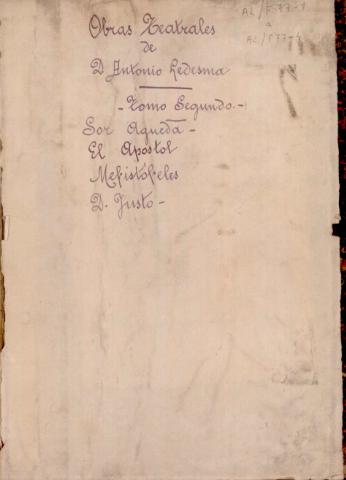 Obras Teatrales
de
D. Antonio Ledesma
- Tomo Segundo. -
Sor Agueda -
El Apostol
Mefistofeles
D. Justo -